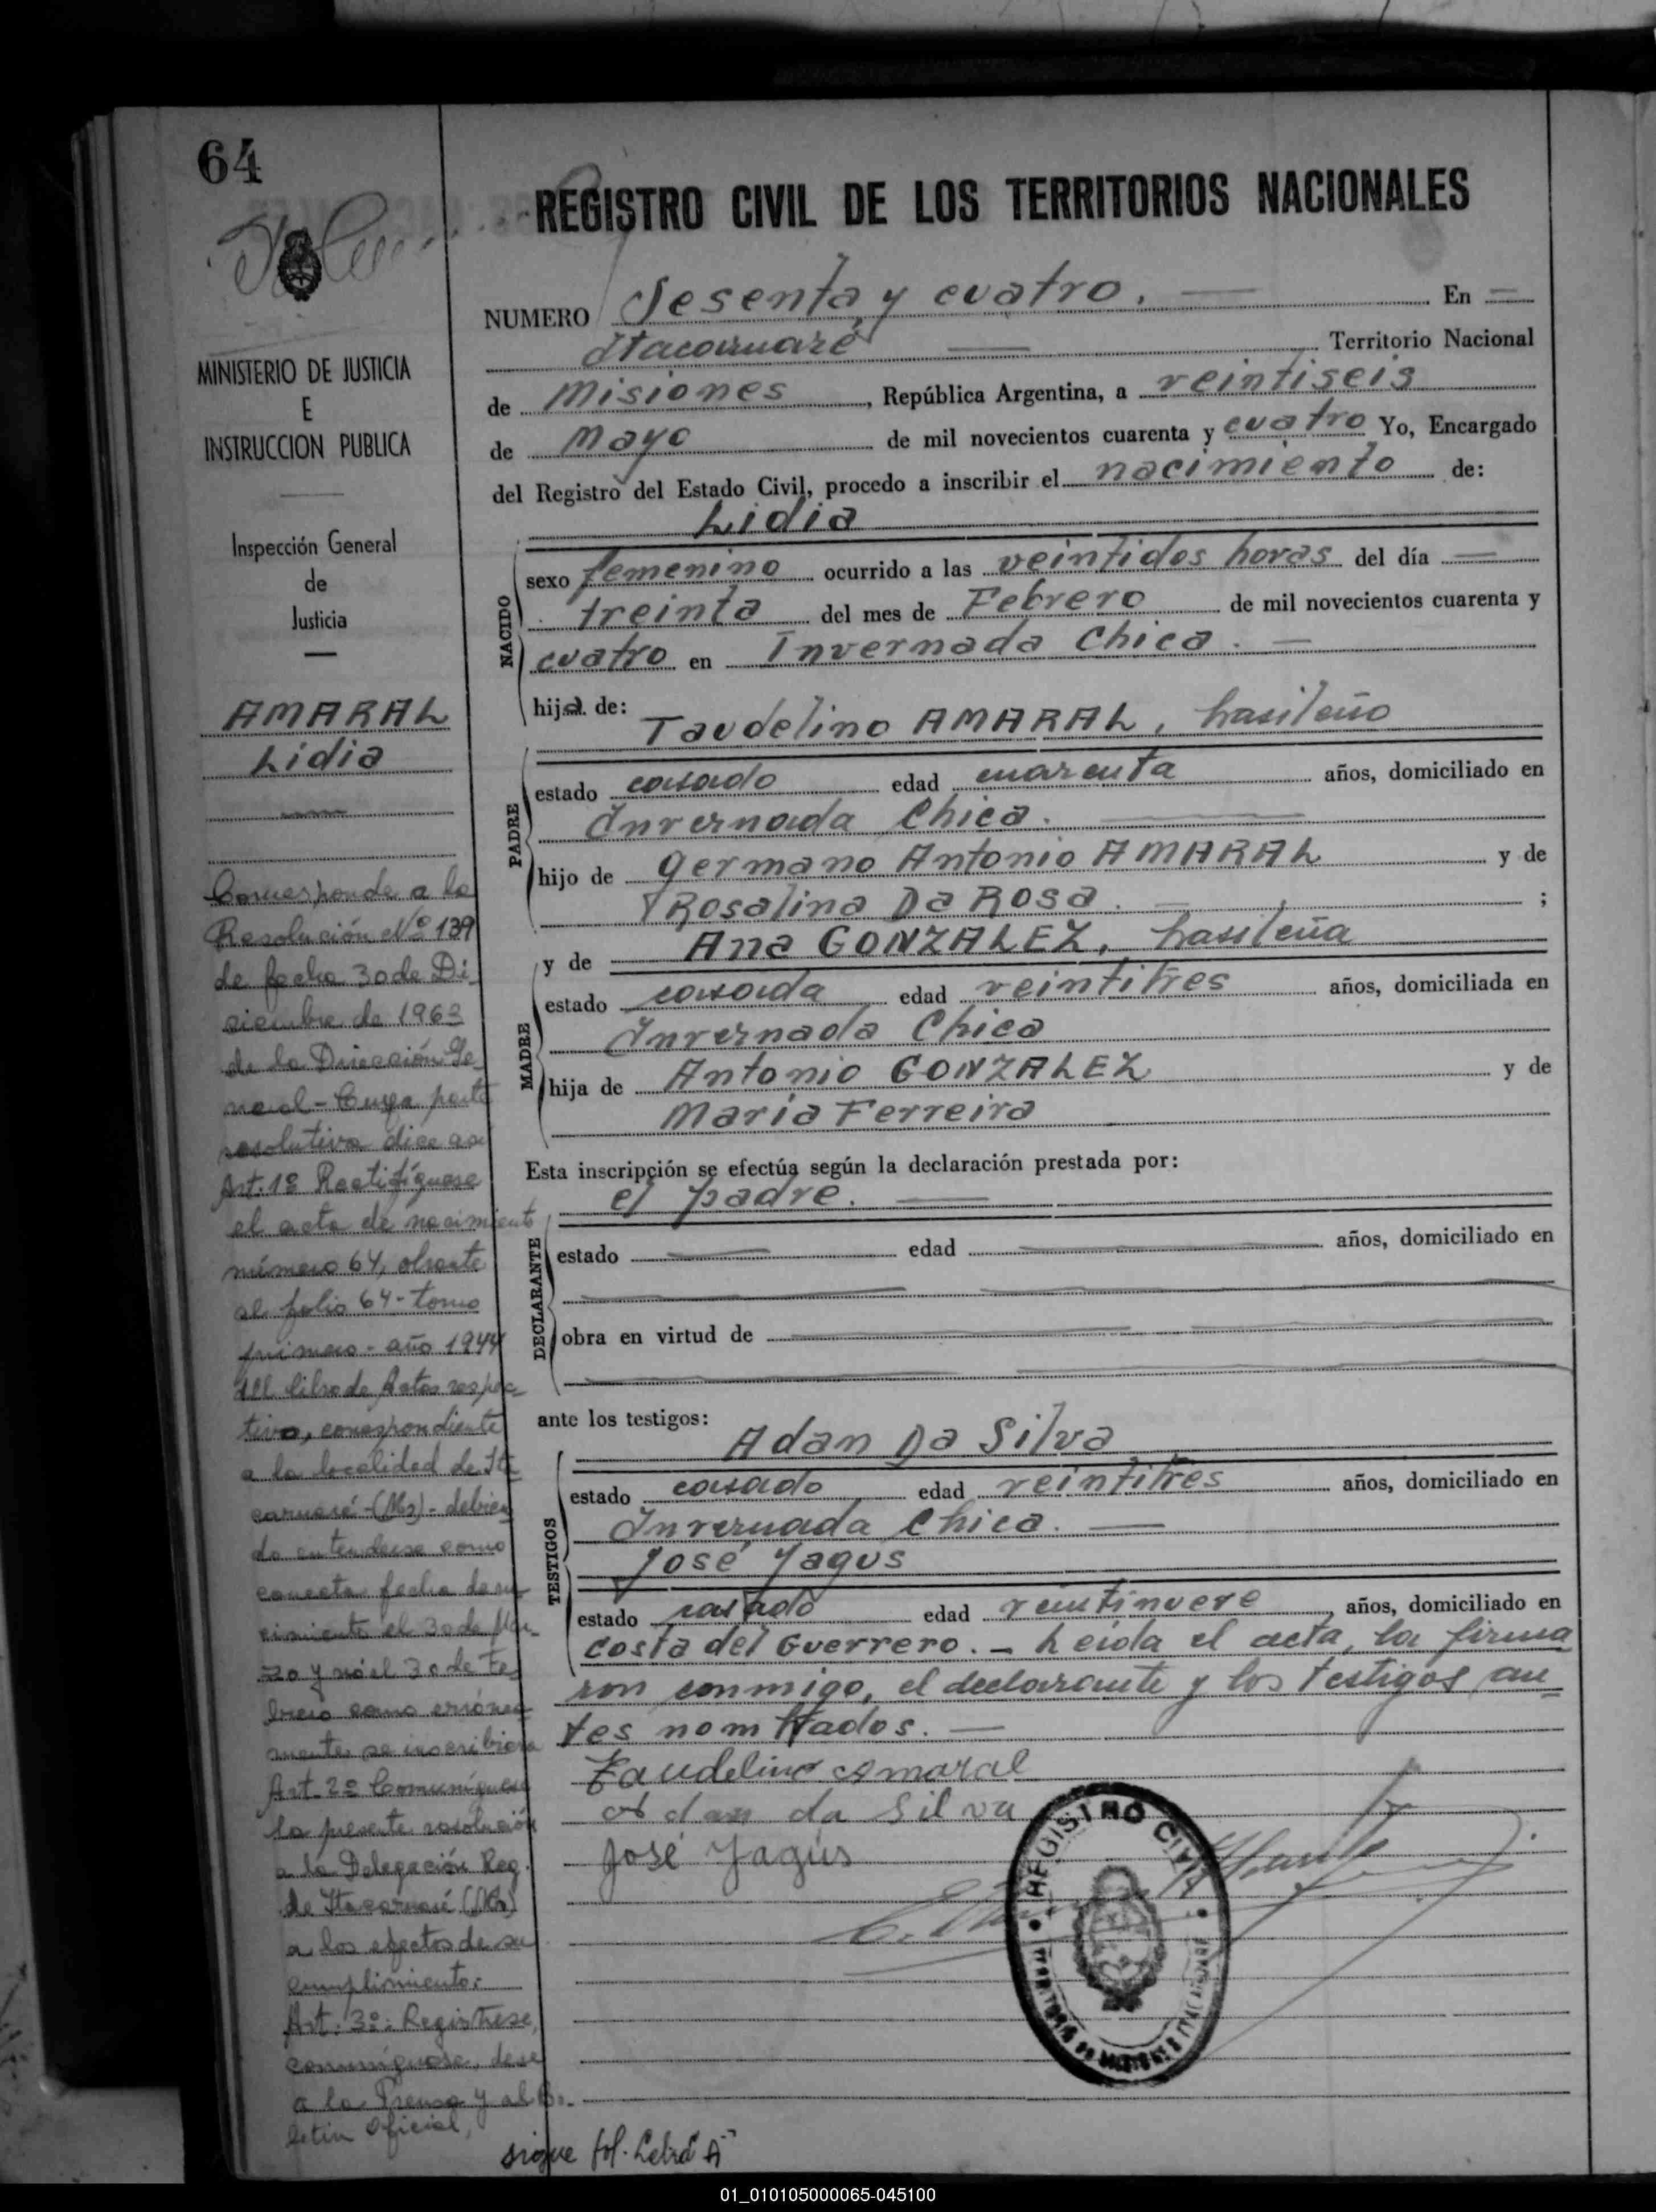 64
REGISTRO CIVIL DE LOS TERRITORIOS NACIONALES
MINISTERIO DE JUSTICIA
E
INSTRUCCION PUBLICA
Inspección General
de
Justicia
AMARAL
Lidia
Corresponde a la
Resolución Nº 139
de fecha 30 de Di-
ciembre de 1963
de la Dirección Ge-
neral - Cuya parte
resolutiva dice asi
Art. 1º Rectifíquese
el acta de nacimiento
número 64, obrante
al folio 64 - tomo
primero - año 1944
del libro de Actas respec-
tivo, correspondiente
a la localidad de Ita-
caruaré - (Ms) - debien-
do entenderse como
correcta fecha de na-
cimiento el 30 de Mar-
zo y nó el 30 de Fe-
brero como errónea-
mente se inscribiera
Art. 2º Comuníquese
la presente resolución
a la Delegación Reg.
de Itacaruaré (Ms)
a los efectos de su
cumplimiento.
Art. 3º: Regístrese,
comuníquese, dese
a la Prensa y al Bo-
letin Oficial,
sigue fol. Letra "A"
NUMERO Sesenta y cuatro. — En —
Itacaruaré — Territorio Nacional
de Misiones, República Argentina, a veintiseis
de Mayo de mil novecientos cuarenta y cuatro Yo, Encargado
del Registro del Estado Civil, procedo a inscribir el nacimiento de:
Lidia
NACIDO
sexo femenino ocurrido a las veintidos horas del día —
treinta del mes de Febrero de mil novecientos cuarenta y
cuatro en Invernada Chica. —
hija de:
Taudelino AMARAL, brasileño
PADRE
estado casado edad cuarenta años, domiciliado en
Invernada Chica. —
hijo de Germano Antonio AMARAL y de
Rosalina Da Rosa. — ;
y de Ana GONZALEZ, brasileña
MADRE
estado casada edad veintitres años, domiciliada en
Invernada Chica
hija de Antonio GONZALEZ y de
María Ferreira
Esta inscripción se efectúa según la declaración prestada por:
el padre. —
DECLARANTE
estado — edad — años, domiciliado en
obra en virtud de —
ante los testigos:
Adan Da Silva
TESTIGOS
estado casado edad veintitres años, domiciliado en
Invernada Chica. —
José Yagus
estado casado edad veintinueve años, domiciliado en
costa del Guerrero. — Leida el acta, la firma
ron conmigo, el declarante y los testigos an-
tes nombrados. —
Taudelino Amaral
Adan da Silva
José Yagus
REGISTRO CIVIL
01_010105000065-045100